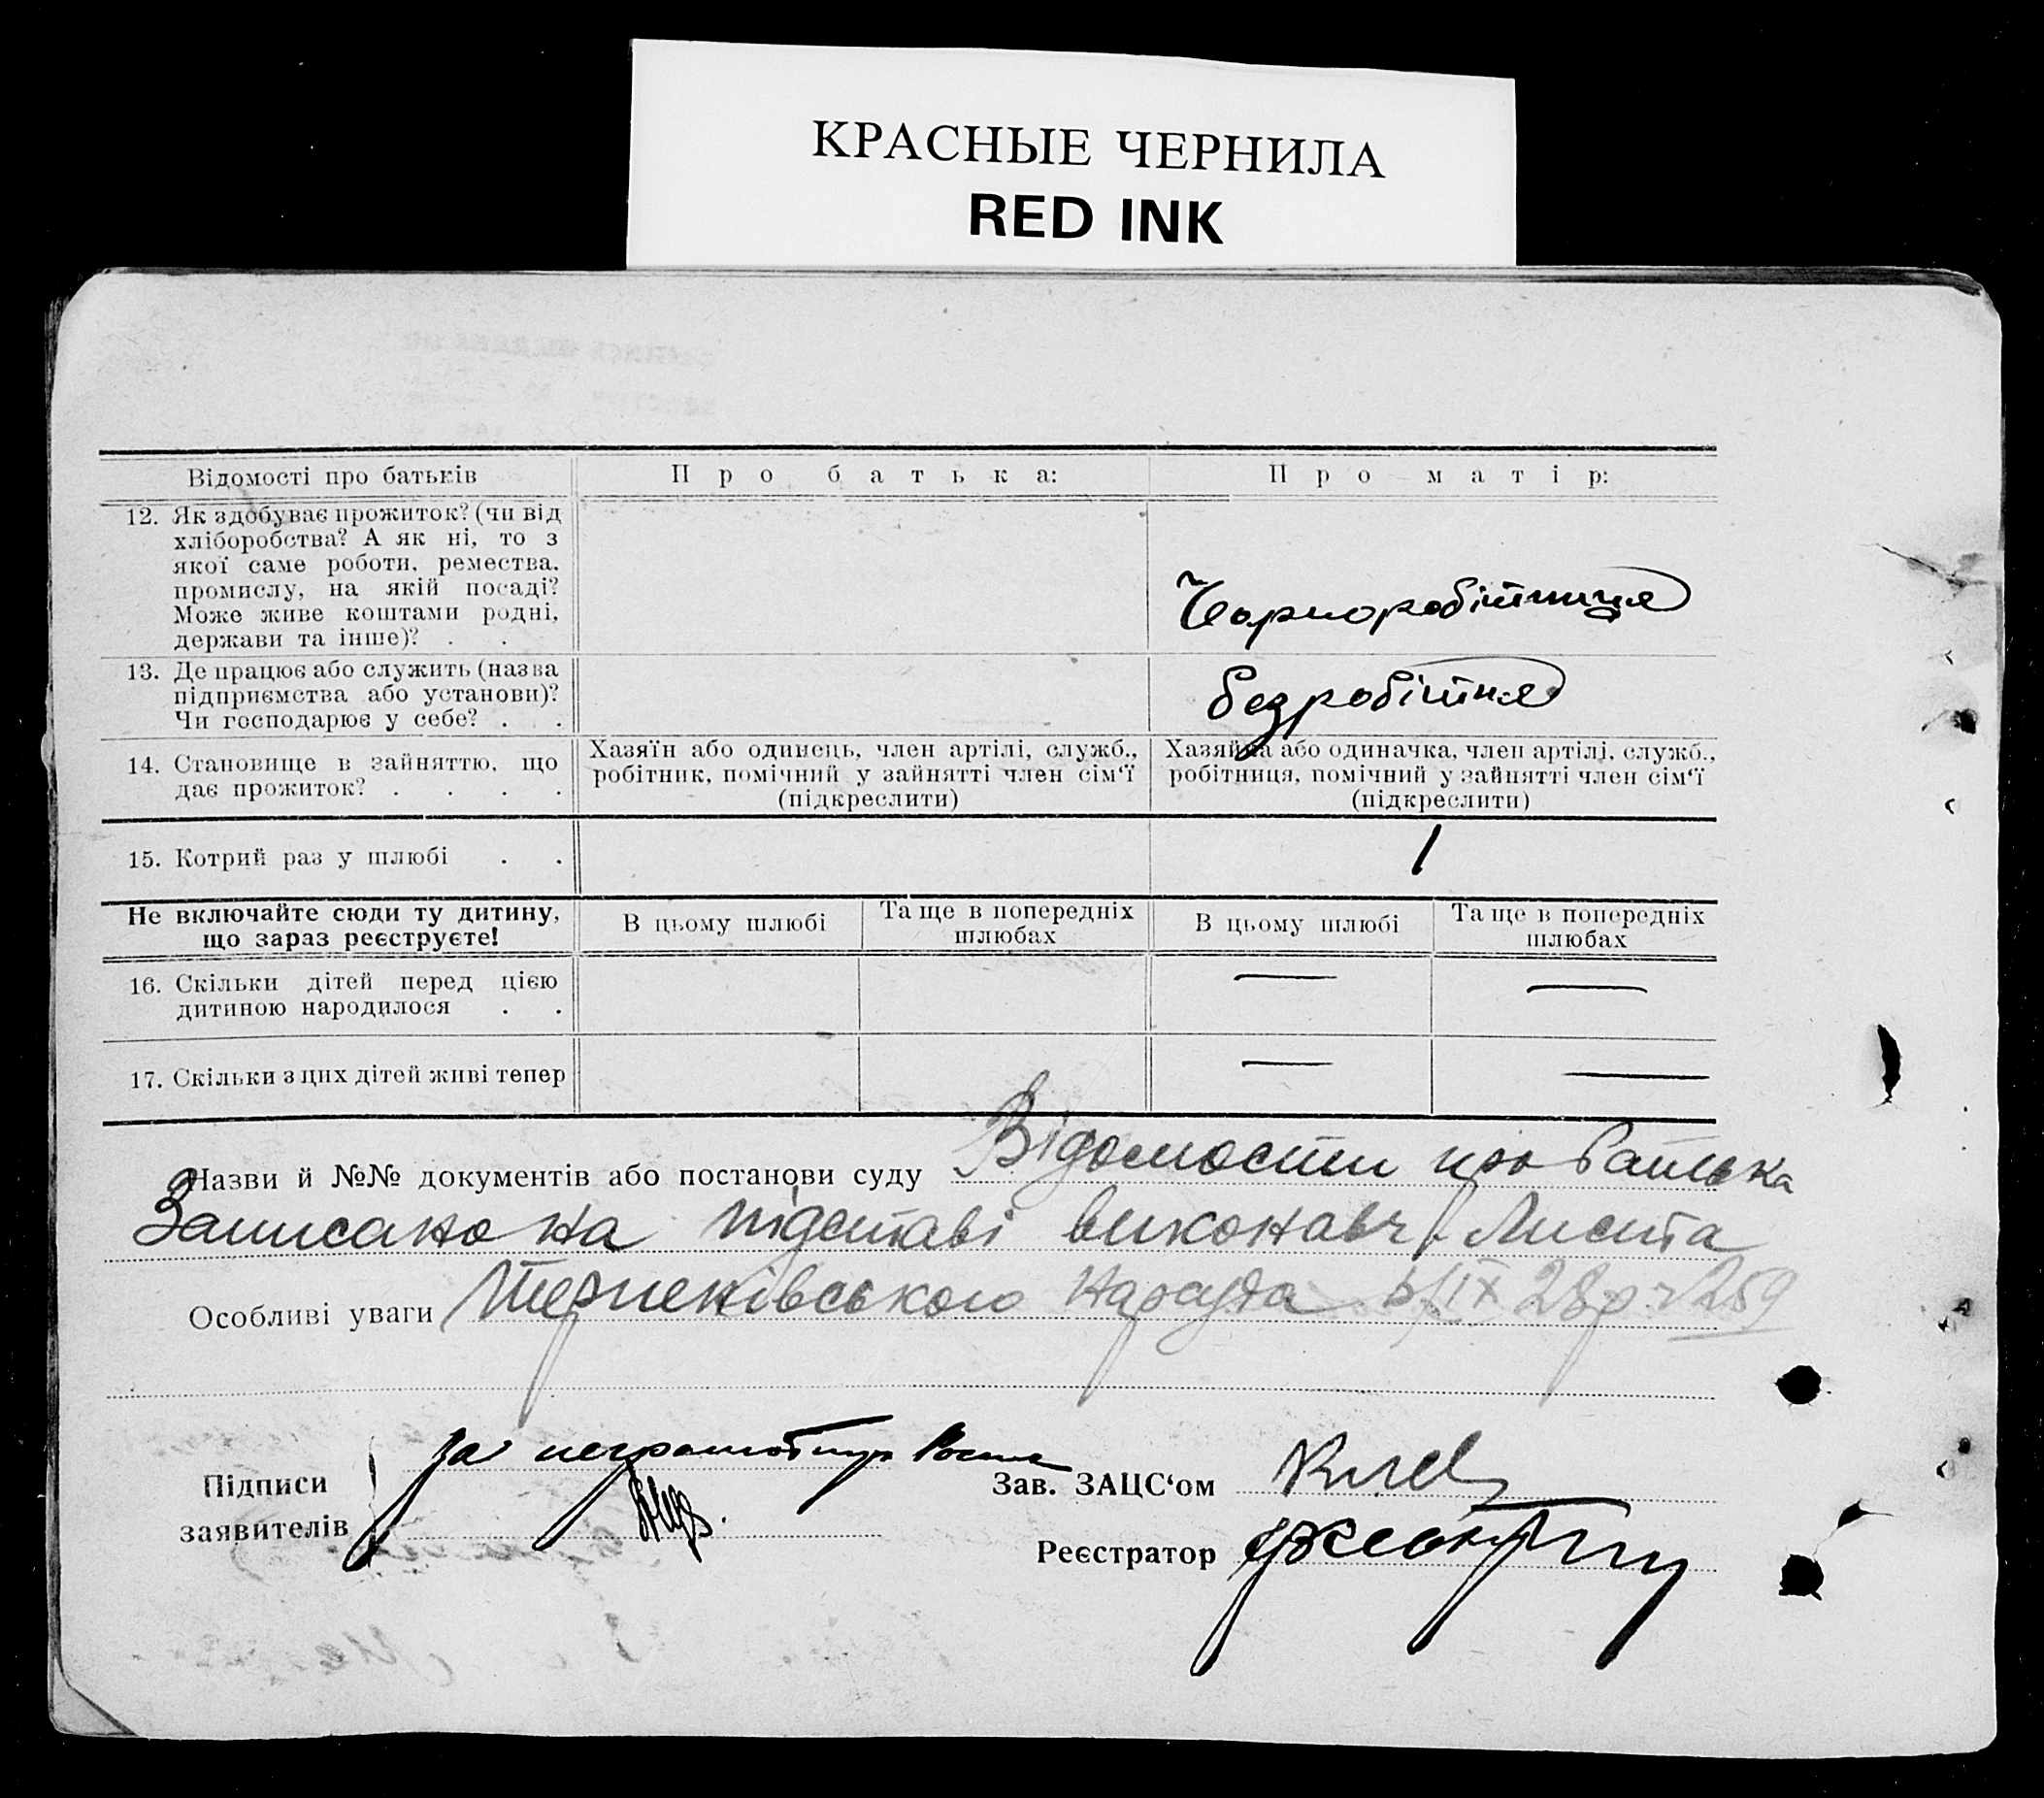 КРАСНЫЕ ЧЕРНИЛА
RED INK
Відомості про батьків
Про батька:
Про матір:
12. Як здобуває прожиток? (чи від
хліборобства? А як ні, то з
якої саме роботи, ремества,
промислу, на якій посаді?
Може живе коштами родні,
держави та інше)? . .
Чорноробітниця
13. Де працює або служить (назва
підприємства або установи)?
Чи господарює у себе? . .
безробітня
14. Становище в зайняттю, що
дає прожиток? . . . .
Хазяїн або одинець, член артілі, служб.,
робітник, помічний у зайнятті член сім‘ї
(підкреслити)
Хазяйка або одиначка, член артілі, служб.,
робітниця, помічний у зайнятті член сім‘ї
(підкреслити)
15. Котрий раз у шлюбі . .
1
Не включайте сюди ту дитину,
що зараз реєструєте!
В цьому шлюбі
Та ще в попередніх
шлюбах
В цьому шлюбі
Та ще в попередніх
шлюбах
16. Скільки дітей перед цією
дитиною народилося . .
— —
17. Скільки з цих дітей живі тепер
— —
Назви й №№ документів або постанови суду Відомости про батька
Записано на підставі виконавч. Листа
Особливі уваги Нарсуда IX 28р 259
Підписи
заявителів
за
Зав. ЗАЦС‘ом
Реєстратор